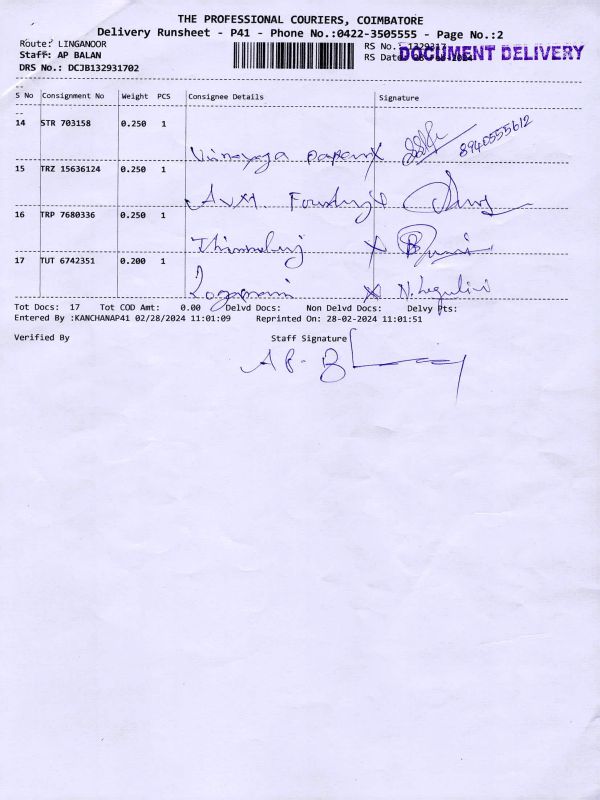 THE PROFESSIONAL COURIERS, COIMBATORE
Delivery Runsheet - P41 - Phone No.:0422-3505555 - Page No.:2
Route: LINGANOOR
RS No.: 1329317
DOCUMENT DELIVERY
Staff: AP BALAN
RS Date
DRS No.: DCJB132931702
S No Consignment No Weight PCS Consignee Details Signature
14 STR 703158 0.250 1
Vinayaga papers X 8940555612
15 TRZ 15636124 0.250 1
16 TRP 7680336 0.250 1
17 TUT 6742351 0.200 1
Tot Docs: 17 Tot COD Amt: 0.00 Delvd Docs: Non Delvd Docs: Delvy Pts:
Entered By :KANCHANAP41 02/28/2024 11:01:09 Reprinted On: 28-02-2024 11:01:51
Verified By Staff Signature